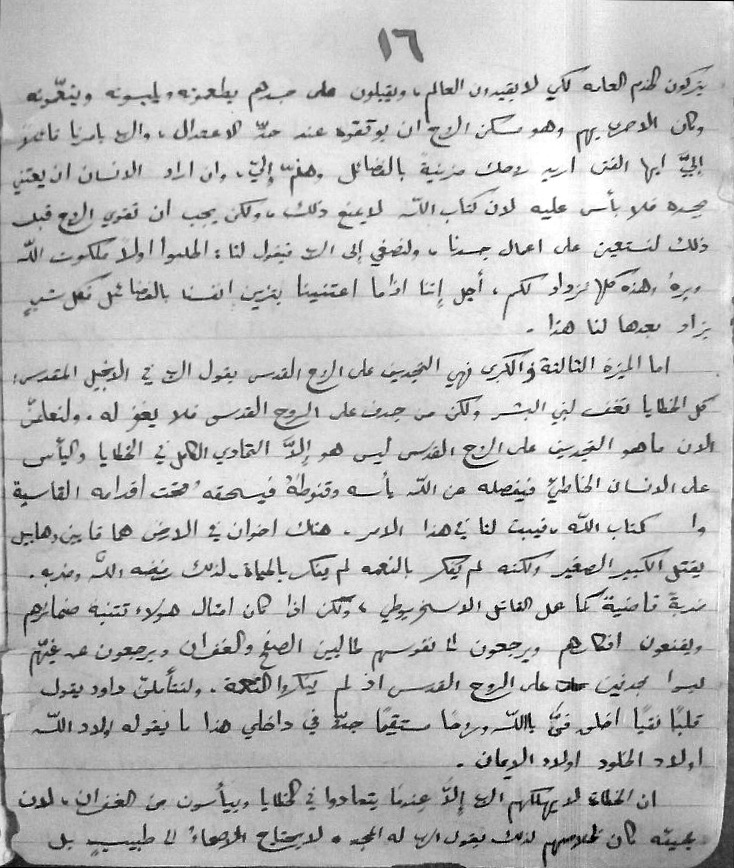 ١٦
يتركون الخدم العامه لكي لا يفيدون العالم، ويقبلون على جسدهم يطعمونه ويلبسونه وينعّمونه
وكان الاحرى بهم وهو مسكن الروح ان يوقفوه عند حدّ الاعتدال، والرب يامرنا قائلاً
إليّ ايها الفتى اريد روحك مزينة بالفضائل وهلمّ إليّ، وان اراد الانسان ان يعتني
بجسده فلا بأس عليه لان كتاب الله لا يمنع ذلك، ولكن يجب ان نقوي الروح قبل
ذلك لنستعين على اعمال جسدنا، ولنصغي إلى الرب فيقول لنا: اطلبوا اولاً ملكوت الله
وبرهُ وهذه كلها تزداد لكم، أجل إننا اذا ما اعتنينا بتزين انفسنا بالفضائل فكل شيءٍ
يزاد بعدها لنا هذا.
اما الميزة الثالثة والكبرى فهي التجديف على الروح القدس يقول الرب في الانجيل المقدس:
كل الخطايا تغفر لبني البشر ولكن من جدف على الروح القدس فلا يغفر له. ولنعلمنّ
الان ما هو التجديف على الروح القدس ليس هو إلاَّ التمادي الكامل في الخطايا واليأس
على الانسان الخاطئ فيفصله عن الله يأسه وقنوطهُ فيسحقه تحت أقدامه القاسية
وا كتاب الله، فيبت لنا في هذا الامر. هناك اخوان في الارض هما قايين وهابيل
يقتل الكبير الصغير ولكنه لم يفكر بالنعمه لم يفكر بالحياة. لذلك رفضه الله وضربه.
ضربةً قاضية كما عمل القاتل الاسخريوطي، ولكن اذا كان امثال هولاء تتنبه ضمائرهم
ويقنعون افكارهم ويرجعون الى نفوسهم طالبين الصفح والغفران ويرجعون عن غيّهم
ليسوا مجدفين على الروح القدس اذ لم ينكروا النعمة. ولنتأملنّ داود يقول
قلبًا نقيًا اخلق فيَّ يا الله وروحًا مستقيمًا جدّد في داخلي هذا ما يقوله اولاد الله
اولاد الخلود اولاد الايمان.
ان الخطاة لا يهلكهم الرب إلاَّ عندما يتمادوا في الخطايا وييأسون من الغفران، لان
مجيئه كان لخلاصهم لذلك يقول الرب له المجد، لا يحتاج الاصحاءُ الى طبيبٍ بل